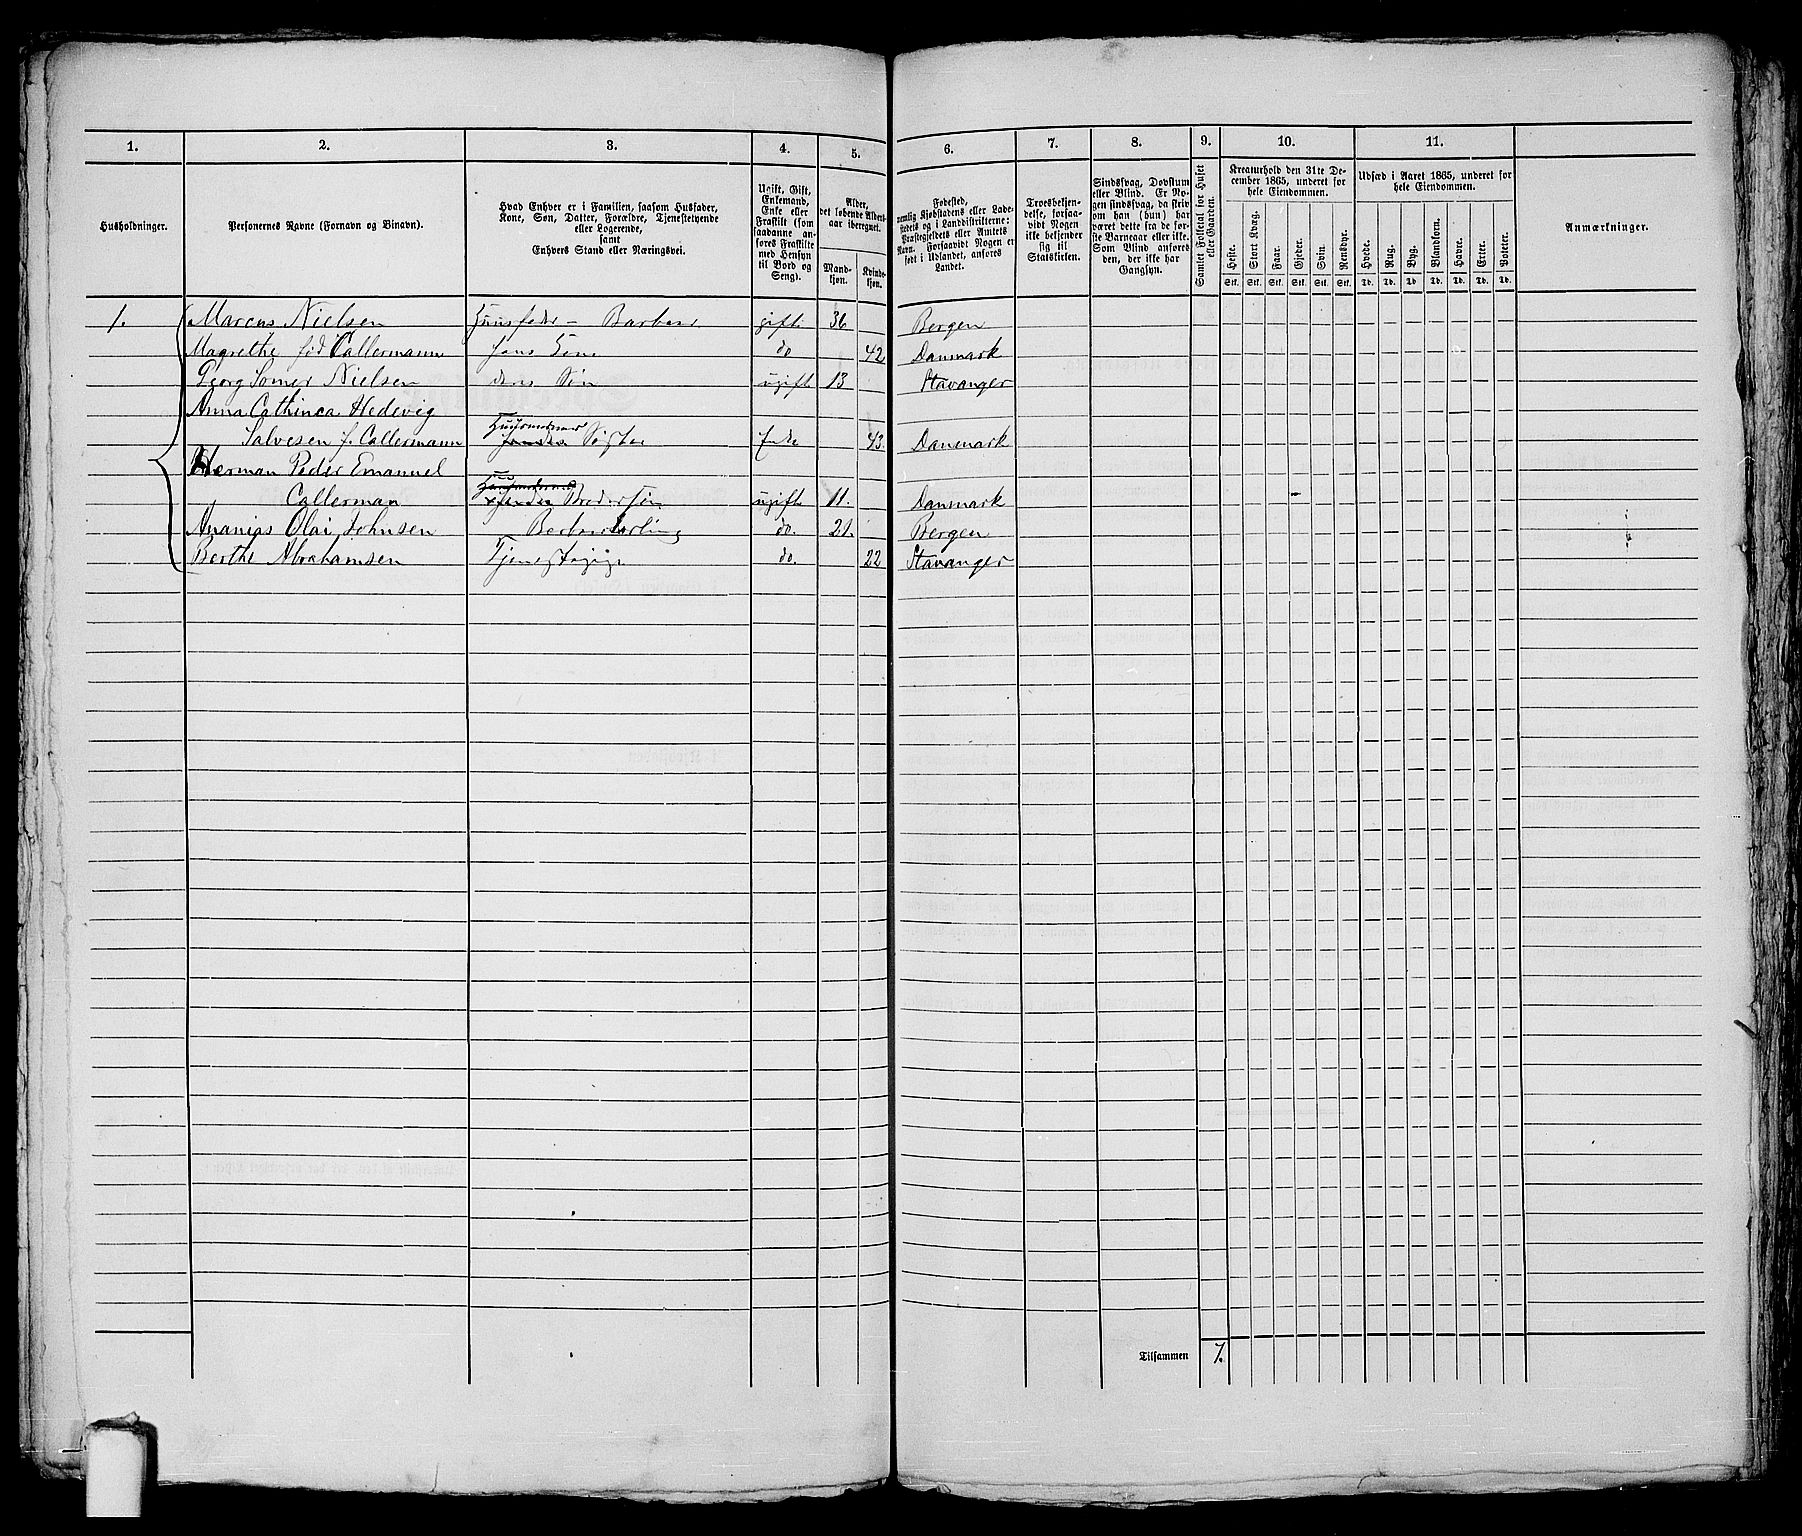 1. 2. 3. 4. 5. 6. 7. 8. 9. 10. 11.
Husholdninger.
Personernes Navne (Fornavn og Binavn).
Hvad Enhver er i Familien, saasom Husfader,
Kone, Søn, Datter, Forældre, Tjenestetyende
eller Logerende,
samt
Enhvers Stand eller Næringsvei.
Ugift, Gift,
Enkemand,
Enke eller
Fraskilt (som
saadanne an-
føres Fraskilte
med Hensyn
til Bord og
Seng).
Alder,
det løbende Alders-
aar iberegnet.
Mand-
kjøn.
Kvinde-
kjøn.
Fødested,
nemlig Kjøbstadens eller Lade-
stedets og i Landdistrikterne:
Præstegjeldets eller Amtets
Navn. Forsaavidt Nogen er
født i Udlandet, anføres
Landet.
Troesbekjen-
delse, forsaa-
vidt Nogen
ikke bekjender
sig til
Statskirken.
Sindssvag, Døvstum
eller Blind. Er No-
gen sindssvag, da skriv
om han (hun) har
været dette fra de før-
ste Barneaar eller ikke.
Som Blind anføres
den, der ikke har
Gangsyn.
Samlet Folketal for Huset
eller Gaarden.
Kreaturhold den 31te De-
cember 1865, underet for
hele Eiendommen.
Heste. Stort Kvæg. Faar. Gjeder. Svin. Rensdyr.
Stk. Stk. Stk. Stk. Stk. Stk.
Udsæd i Aaret 1865, underet for
hele Eiendommen.
Hvede. Rug. Byg. Blandkorn. Havre. Erter. Poteter.
Td. Td. Td Td. Td. Td. Td.
Anmærkninger.
1. Marcus Nielsen Huusfader - Barbeer gift 36 Bergen
Magrethe fød Callermann hans Kone do 42 Danmark
Georg Somer Nielsen deres Søn ugift 13 Stavanger
Anna Cathinca Hedevig
Salvesen f. Callermann Søster Enke 43. Danemark
Herman Peder Emanuel
Callerman Brodersøn ugift 11. Danmark
Ananias Olai Johnsen Barbeerlærling do. 21. Bergen
Berthe Abrahamsen Tjenestepige do. 22 Stavanger
Tilsammen 7.